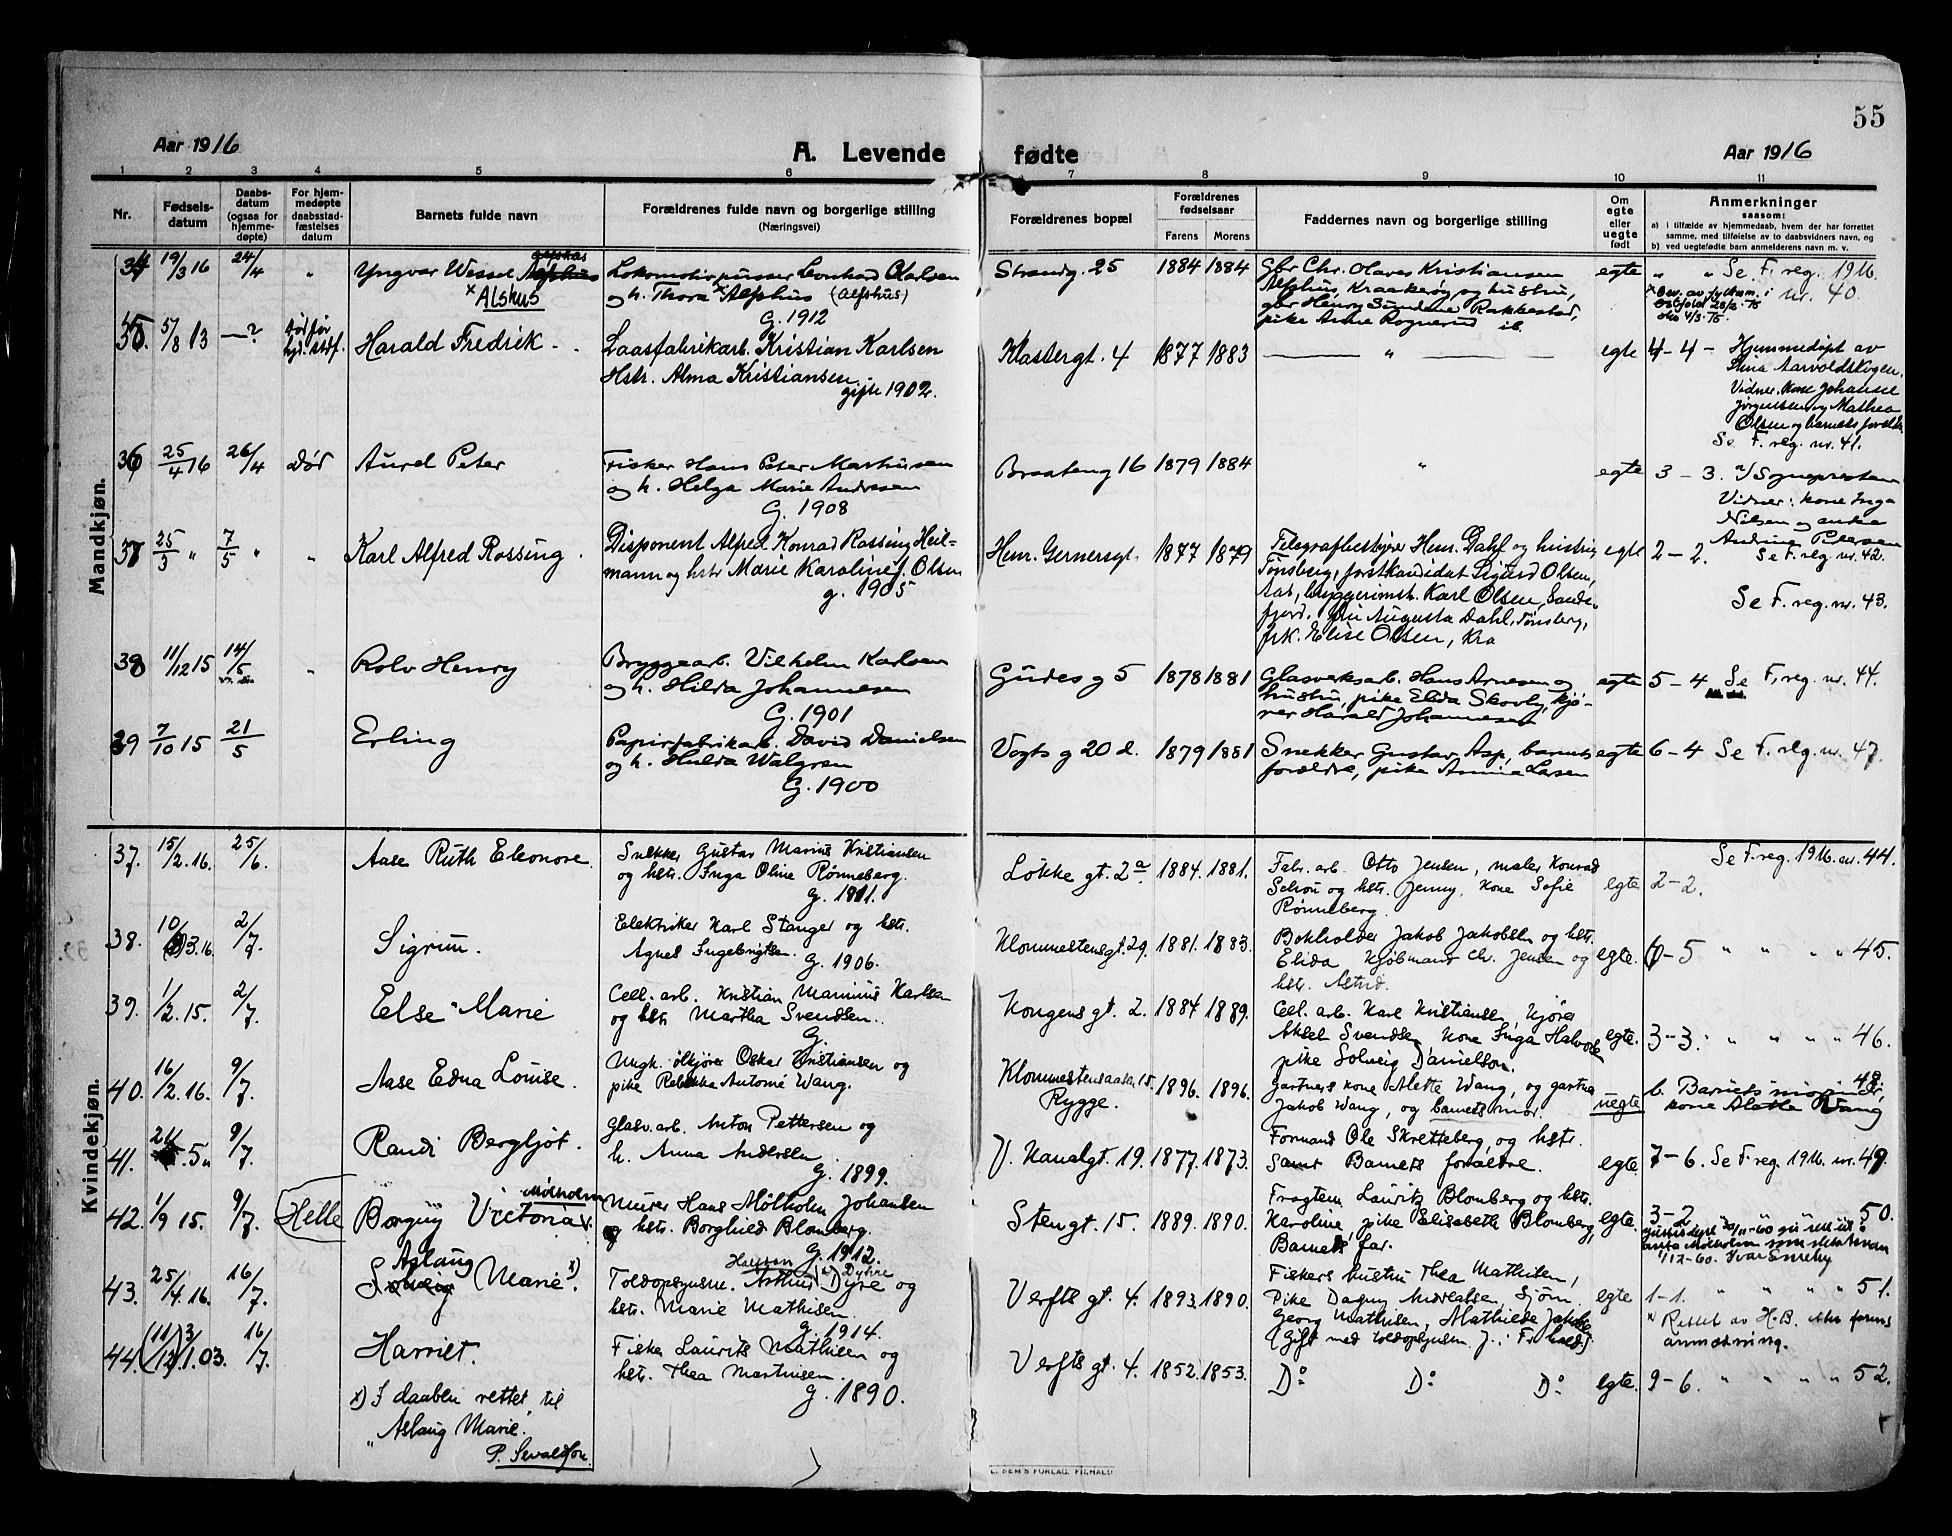 55
Aar 1916
A. Levende fødte
Aar 1916
1 2 3 4 5 6 7 8 9 10 11
Nr.
Fødsels-
datum
Daabs-
datum
(ogsaa for
hjemme-
døpte)
For hjem-
medøpte
daabsstad-
fæstelses
datum
Barnets fulde navn
Forældrenes fulde navn og borgerlige stilling
(Næringsvei)
Forældrenes bopæl
Forældrenes
fødselsaar
Farens Morens
Faddernes navn og borgerlige stilling
Om
egte
eller
uegte
født
Anmerkninger
saasom:
a) i tilfælde av hjemmedaab, hvem der har forrettet
samme, med tilføielse av to daabsvidners navn, og
b) ved uegtefødte barn anmelderens navn m. v.
Mandkjøn.
34 19/3 16 24/4 " Yngvar Wessel
x Alshus
Lokomotivpusser Leonhard Olavsen
og h. Thora x Alfshus (Alfshus)
G. 1912
Strandg. 25 1884 1884
Gbr Chr. Olaves Kristiansen
Alfshus, Kraakerøy og hustru,
gbr Henry Sundene Rakkestad,
pike Anne Rognerud ib.
egte " " Se F. reg. 1916.
nr. 40.
35. 5/8 13 —? Død før
Harald Fredrik
Laasfabrikarb. Kristian Karlsen
Hstr. Alma Kristiansen.
gift 1902.
Klostergt. 4 1877 1883 — " — egte 4-4-
Hjemmedøpt av
Stina Aarvoldskogen.
Vidner. Kone Johanne
Jørgensen og Mathea
Olsen og barnets forældre
Se F. reg. nr. 41.
36 25/4 16 26/4 død Aurel Peter
Fisker Hans Peter Marthinsen
og h. Helga Marie Andresen
G. 1908
Braateng 16 1879 1884 " egte 3-3.
a/ Sogneprestem
Vidner: kone Inga
Nilsen og enke
Andrine Petersen
Se F. reg nr. 42.
37 25/3 " 7/5 " " Karl Alfred Rossing.
Disponent Alfred Konrad Rossing Heil-
mann og hstr Marie Karoline f. Olsen
g. 1905
Henr. Gernersgt. 1877 1879
Telegrafbestyrer Henr. Dahl og hustru
Tønsberg, forstkandidat Sigurd Olsen,
Aas, bryggerimstr. Karl Olsen, Sande-
fjord. fru Augusta Dahl, Tønsberg,
frk. Elise Olsen, Kra
egte 2-2.
Se F. reg. nr. 43.
38 11/12 15 14/5 " Rolv Henry
Bryggearb. Vilhelm Karlsen
og h. Hilda Johannesen
G. 1901
Gudes g 5 1878 1881
Glasverksarb. Hans Arnesen og
hustru, pike Elida Skovly, kjø-
rer Harald Johannesen
egte 5-4 Se F. reg. nr. 44.
39 7/10 15 21/5 Erling
Papirfabrikarb. David Danielsen
og h. Hulda Walgren
G. 1900
Vogts g 20 d. 1879 1881
Snekker Gustav Asp, barnets
forældre, pike Annie Larsen
egte 6-4 Se F. reg. nr. 47.
Kvindekjøn.
37. 15/2. 16. 25/6. Aase Ruth Eleonore.
Snekker Gustav Marius Kristiansen
og hstr. Inga Oline Rønneberg.
G. 1911.
Løkke gt. 2a. 1884. 1881.
Fabr. arb. Otto Jensen, maler Konrad
Schou og hstr. Jenny, kone Sofie
Rønneberg.
egte 2-2.
Se F. reg. 1916. nr. 44.
38. 10/3. 16. 2/7. Sigrun.
Elektriker Karl Stanger og hstr.
Agnes Ingebrigtsen.
G. 1906.
Klommestensgt. 29. 1881. 1883.
Bokholder Jakob Jakobsen og hstr.
Elida kjøbmand Chr. Jensen og
hstr. Astrid.
egte. 6-5 " " " " 45.
39. 1/2. 15. 2/7. Else Marie
Cell. arb. Kristian Marinius Karlsen
og hstr Martha Svendsen.
G.
Kongens gt. 2. 1884 1889.
Cell. arb. Karl Kristiansen, Kjører
Aksel Svendsen Kone Inga Halvorsen
pike Solveig Danielson.
egte. 3-3. " " " " 46.
40. 16/2. 16. 9/7. Aase Edna Louise.
Ungk. ølkjører Oskar Kristiansen og
pike Rebekka Antonie Wang.
Klommestensaasen 15.
Rygge.
1896. 1896.
Gartners kone Alette Wang, og gartner
Jakob Wang, og barnets mor.
uegte b. Barnets mormoder, 48.
kone Alette Wang
41. 9/7. Randi Bergljot.
Glasv. arb. Anton Pettersen og
h. Anna Andersen
G. 1899.
V. Kanalgt. 19. 1877. 1873.
Formand Ole Skretteberg, og hstr.
Samt Barnets forældre.
egte 7-6. Se F. reg 1916. nr. 49.
42. 1/9 15. 9/7. Helle Borgny Victoria Mølholm
Murer Hans Mølholm Johansen
og hstr. Borghild Blomberg.
G. 1912.
Stengt. 15. 1889. 1890.
Fragtem. Lauritz Blomberg og hstr.
Karoline, pike Elisabeth Blomberg,
Barnets far.
egte. 3-2 50.
43. 25/4. 16. 16/7. Aslaug
Solveig Marie x).
Toldopsynsm. Arthur Dyre og
hstr. Marie Mathisen.
G. 1914.
Verfts gt. 4. 1893. 1890.
Fiskers hustru Thea Mathisen,
Pike Dagny Andreassen, Sjøm.
Georg Mathisen, Mathilde
(Gift med toldopsynsm J.: Fr.hald)
egte 1-1. " " " " 51.
x Rettet av H.B. efter farens
anmerkning.
44. (11/12) 3/1. 03. 16/7. Harriet.
Fisker Laurits Mathisen og
hstr. Thea Martinsen.
G. 1890.
Verfts gt. 4. 1852. 1853.
Do Do: Do: egte. 9-6. " " " " 52.
x) I daabln rettet til
"Aslaug Marie".
P. Sevaldson
E. SEM'S FORLAG. FR.HALD